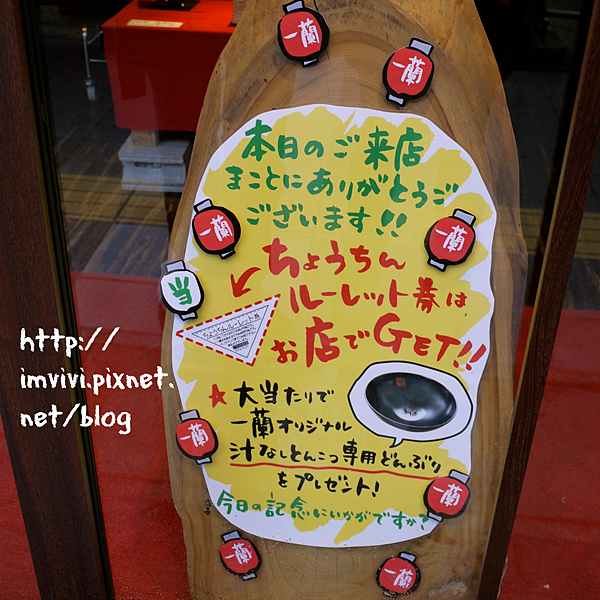 一蘭
一蘭
本日のご来店
まことにありがとうご
ございます!!
一蘭
一蘭
当
ちょうちん
ルーレット券は
お店でGET!!
ちょうちんルーレット券
http://
imvivi.pixnet.
net/blog
★大当たりで
一蘭オリジナル
汁なしとんこつ専用どんぶり
をプレゼント!
一蘭
一蘭
今日の記念にいかがですか?
一蘭
一蘭